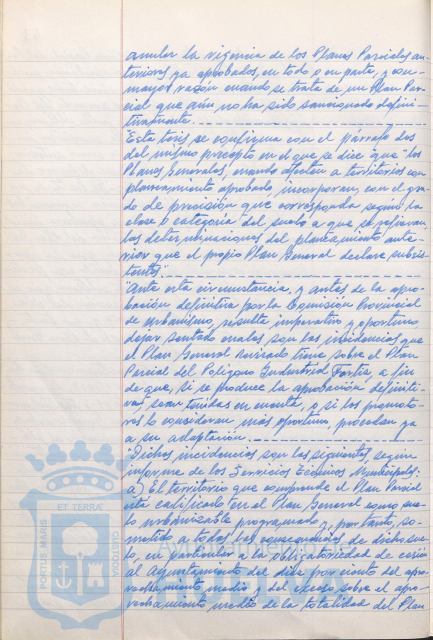 anular la vigencia de los Planes Parciales an-
teriores ya aprobados, en todo o en parte, y con
mayor razón cuando se trata de un Plan Par-
cial que aún no ha sido sancionado defini-
tivamente.
"Esta tesis se confirma con el párrafo dos
del mismo precepto en el que se dice que "los
Planes Generales, cuando afecten a territorios con
planeamiento aprobado, incorporan, con el gra-
do de precisión que corresponda según la
clase o categoría del suelo a que se refieran,
las determinaciones del planeamiento ante-
rior que el propio Plan General declare subsis-
tentes".
"Ante esta circunstancia, y antes de la apro-
bación definitiva por la Comisión Provincial
de Urbanismo, resulta imperativo y oportuno
dejar sentado cuales son las incidencias que
el Plan General Revisado tiene sobre el Plan
Parcial del Polígono Industrial Fortiz a fin
de que, si se produce la aprobación definiti-
va, sean tenidas en cuenta, o si los promoto-
res lo consideran más oportuno, procedan ya
a su adaptación.
"Dichas incidencias son las siguientes según
informe de los Servicios Técnicos Municipales:
a) El territorio que comprende el Plan Parcial
está calificado en el Plan General como sue-
lo urbanizable programado y, por tanto, so-
metido a todas las consecuencias de dicho sue-
lo, en particular a la obligatoriedad de cesión
al Ayuntamiento del diez por ciento del apro-
vechamiento medio y del exceso sobre el apro-
vechamiento medio de la totalidad del Plan
PORTUS MARIS
ET TERRAE
CUSTODIA